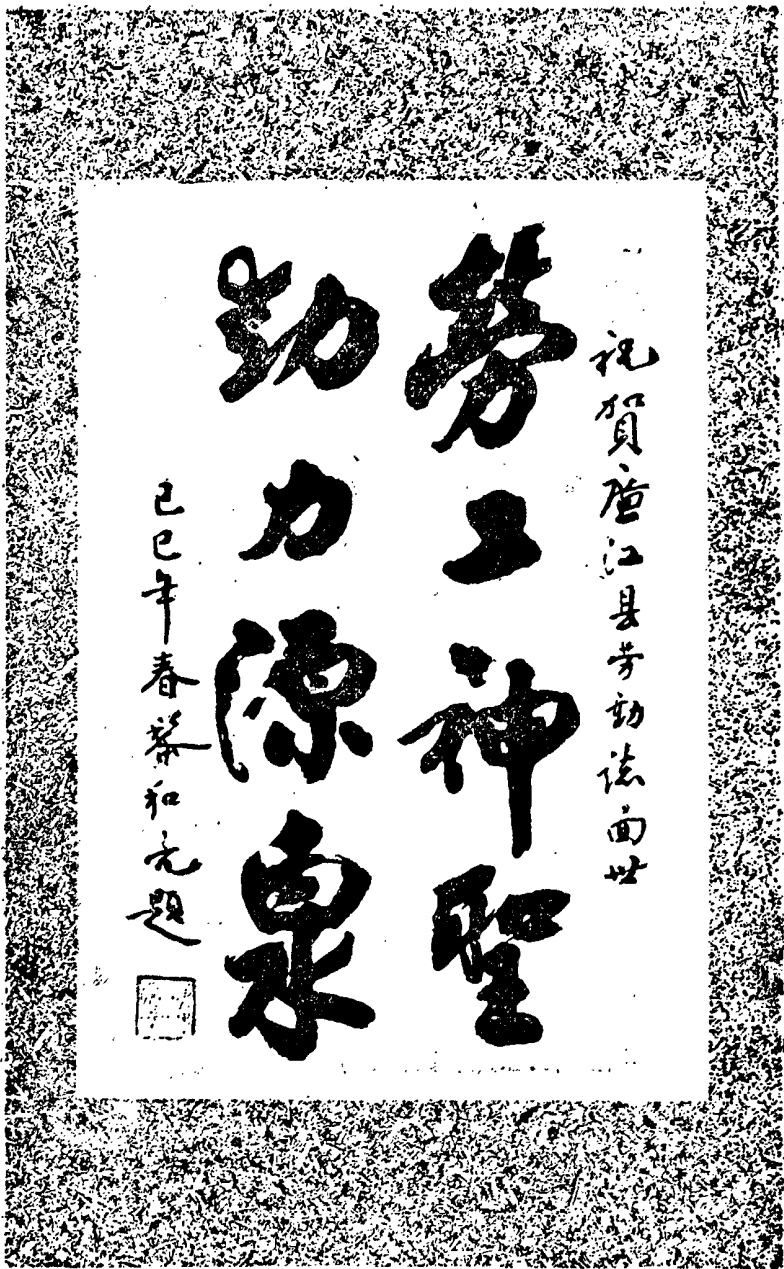 祝賀江县劳動誌面世
勞工神聖
動力源泉
己巳年春和元題